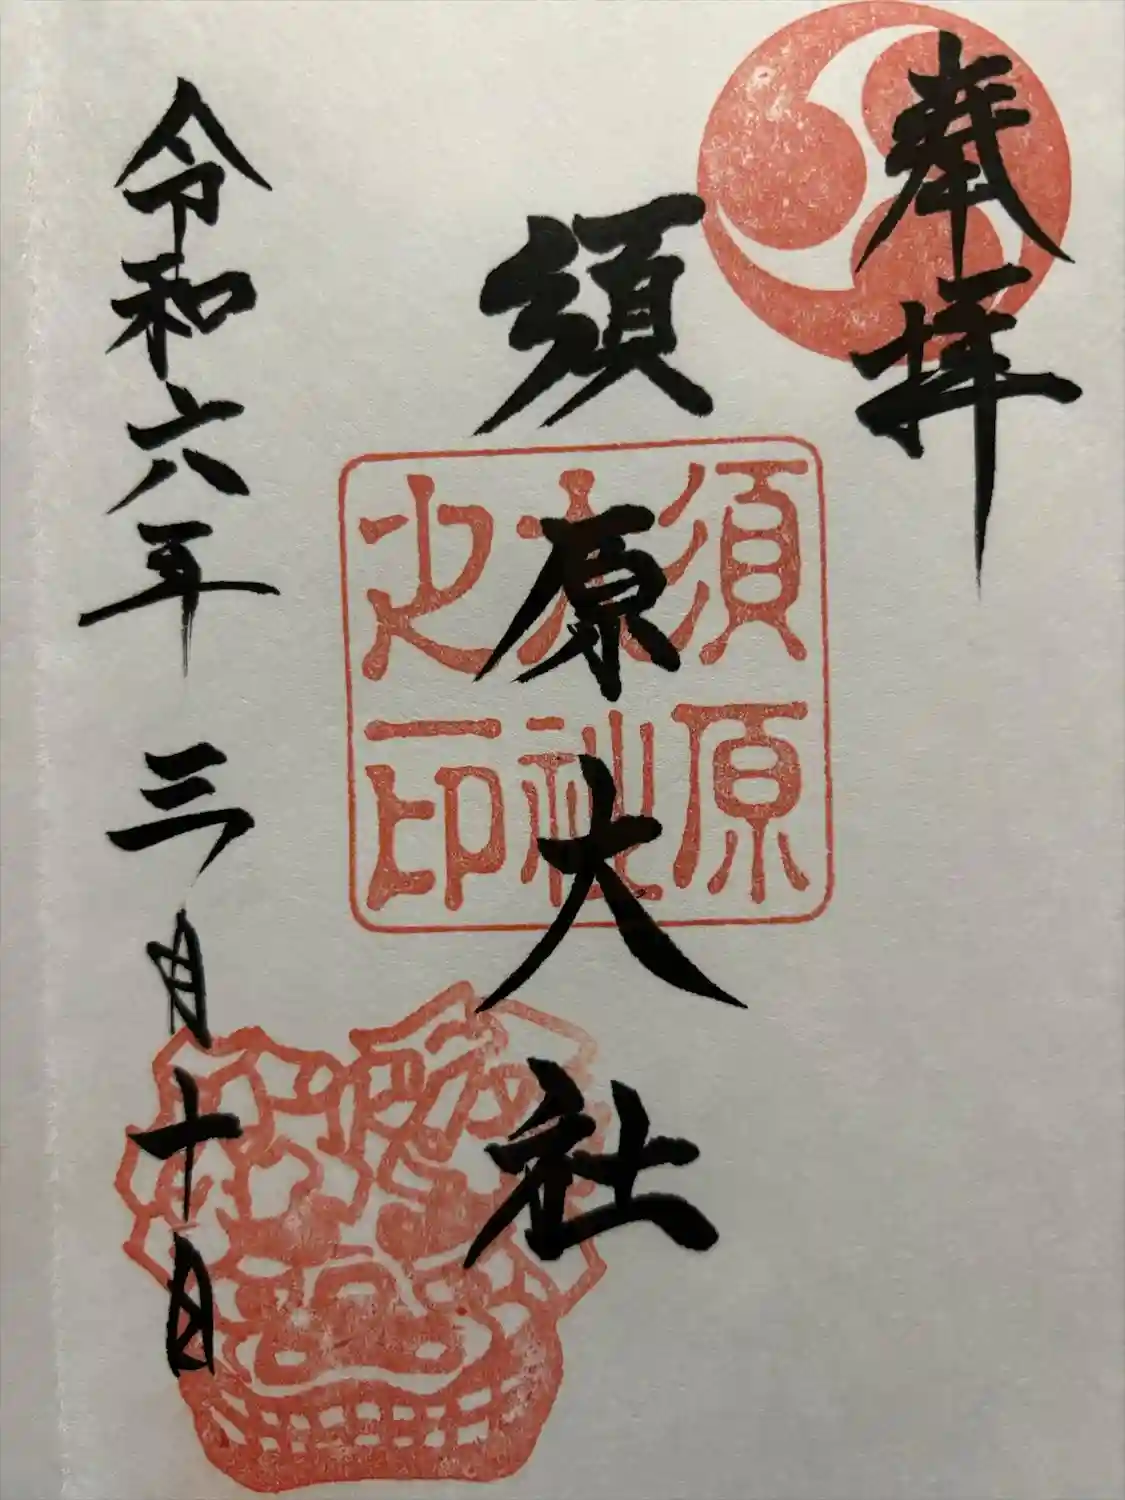 奉拝
須原大社
須原
大社
之印
令和六年 三月十日